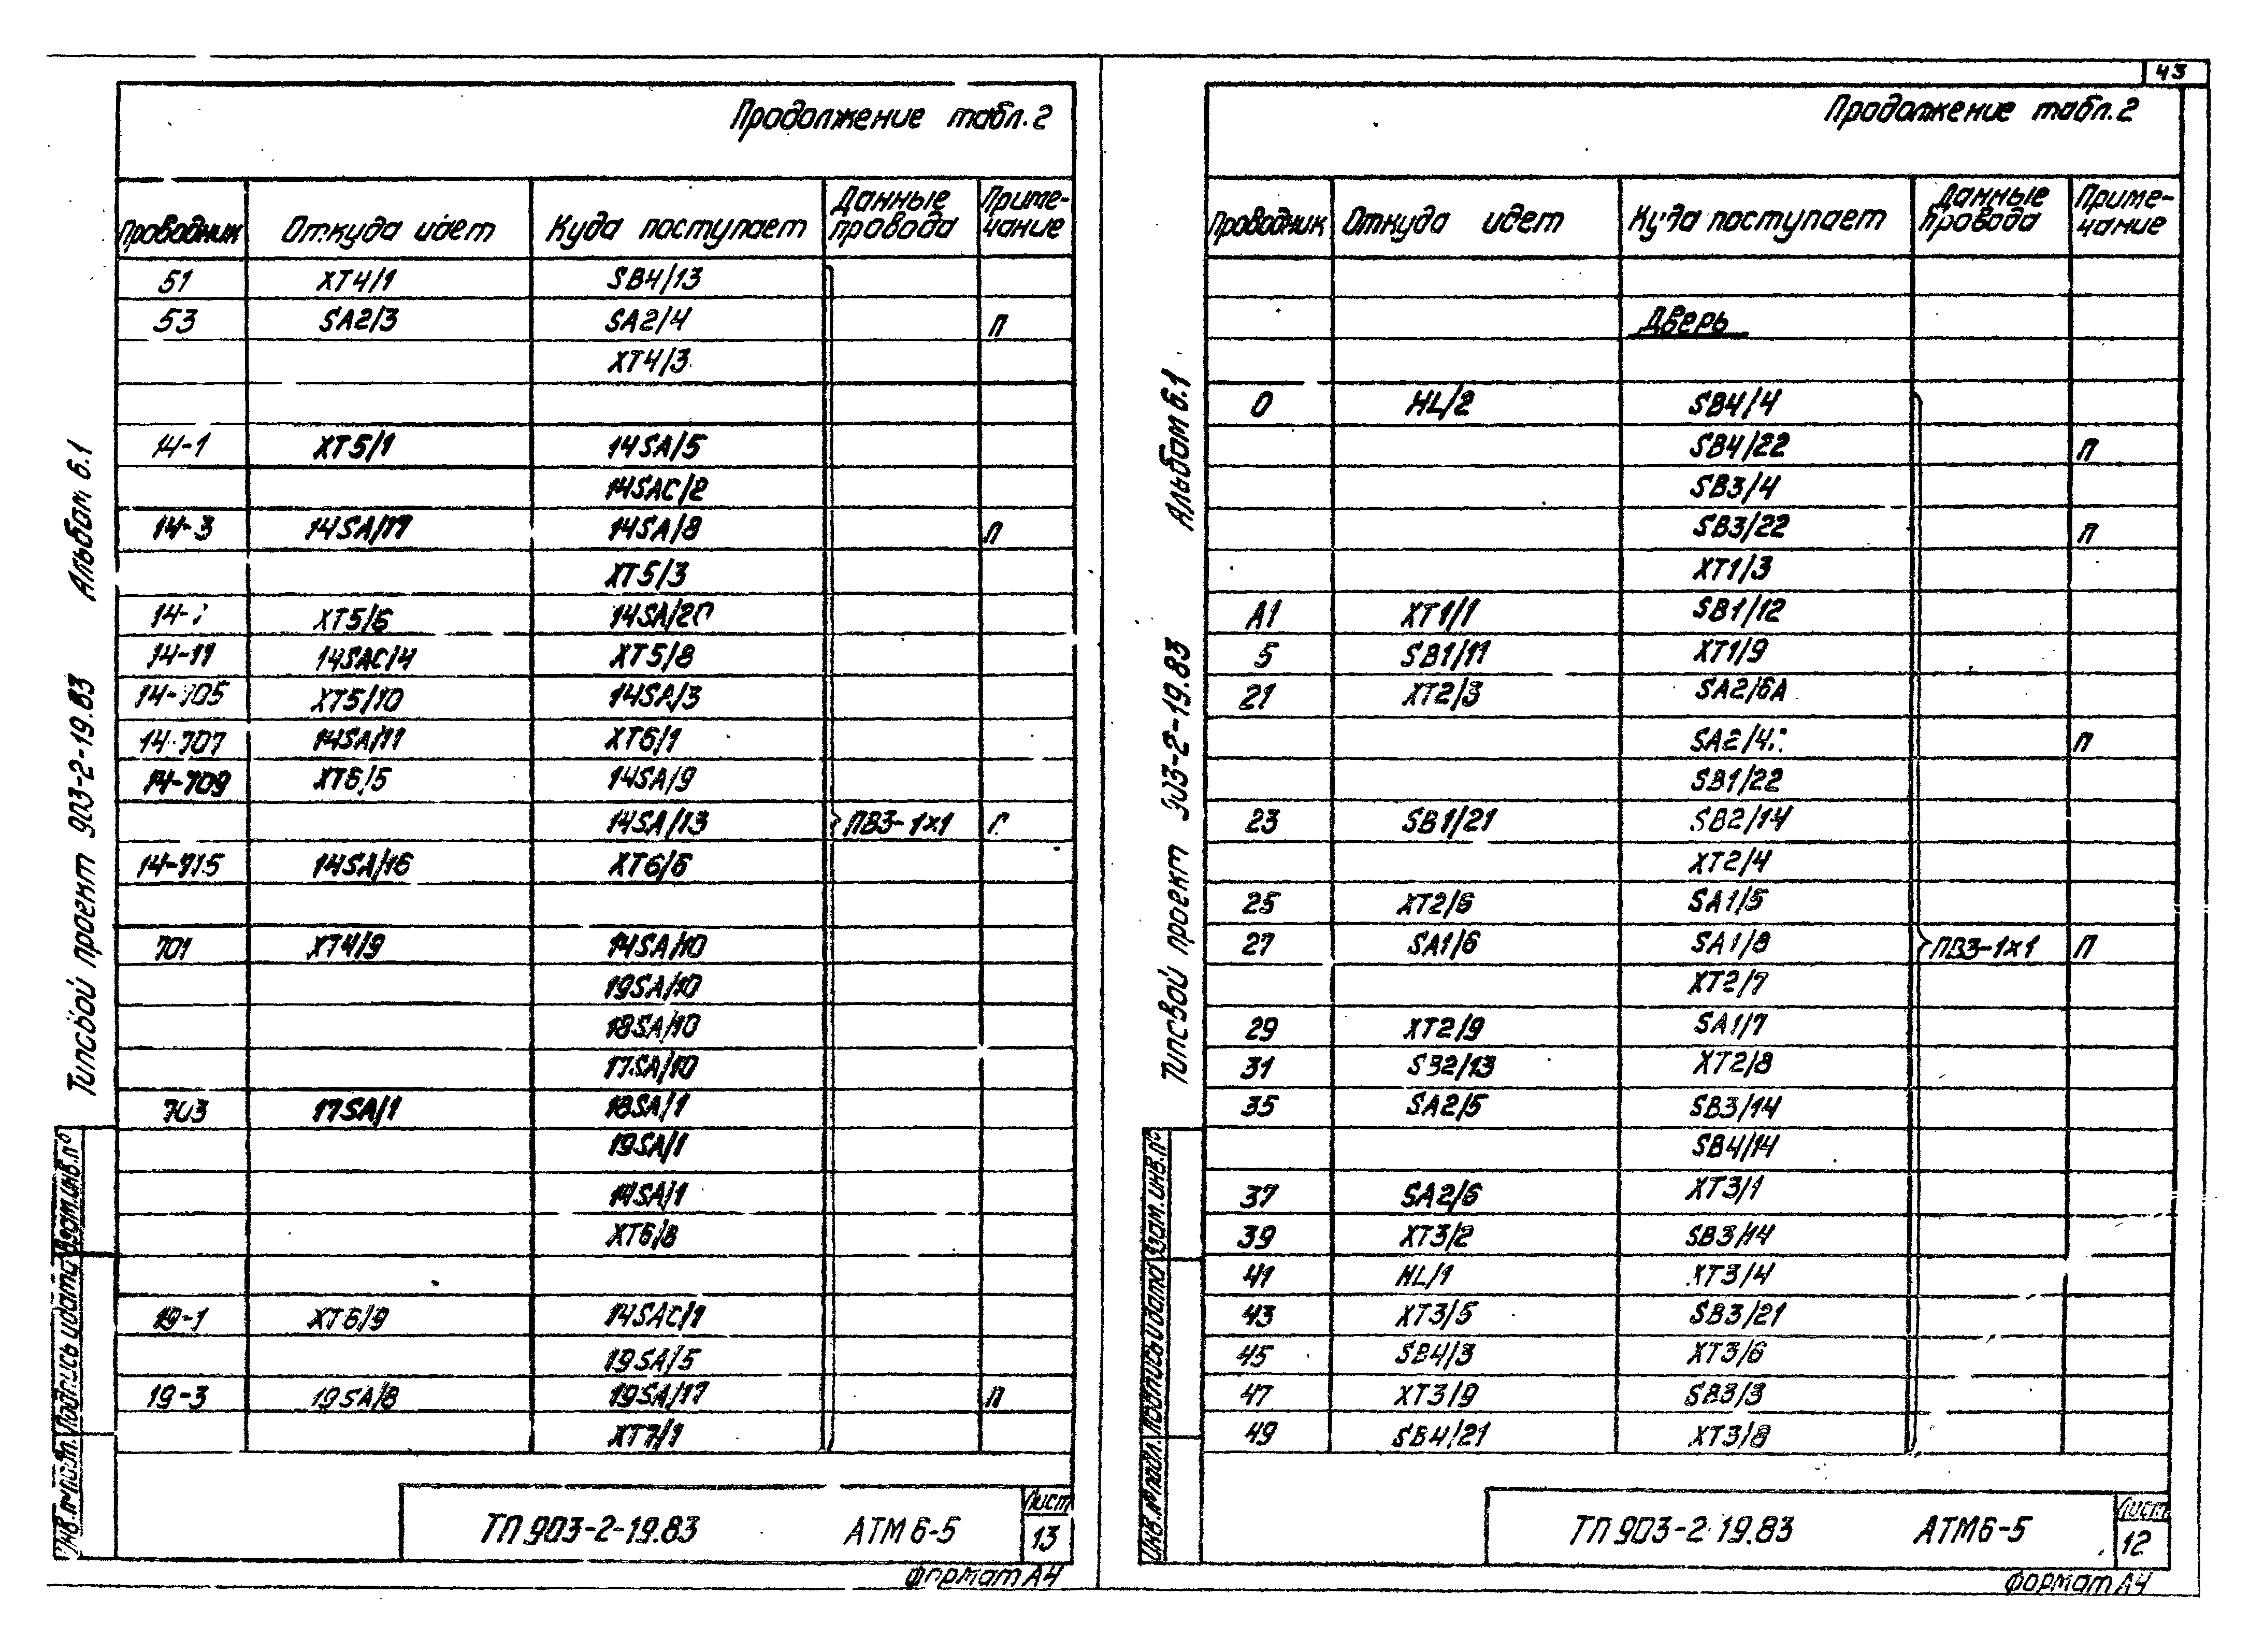 43
Продолжение табл. 2
Проводник Откуда идет Куда поступает Данные провода Приме-чание
51 XT4/1 SB4/13
53 SA2/3 SA2/4 П
XT4/3
14-1 XT5/1 14SA/5
14SAC/2
14-3 14SA/17 14SA/8 П
XT5/3
XT5/6 14SA/20
14-11 14SAC/4 XT5/8
14-705 XT5/10 14SA/3
14-707 14SA/11 XT6/1
14-709 XT6/5 14SA/9
14SA/13 ПВ3-1х1
14-715 14SA/16 XT6/6
701 XT4/9 14SA/10
19SA/10
18SA/10
17SA/10
703 17SA/1 18SA/1
19SA/1
14SA/1
XT6/8
19-1 XT6/9 14SAC/1
19SA/5
19-3 19SA/8 19SA/17 П
XT7/1
ТП 903-2-19.83 АТМ 6-5 Лист 13
Формат А4
Типовой проект 903-2-19.83 Альбом 6.1
Инв.№ подл. Подпись и дата Взам.инв.№
Продолжение табл. 2
Проводник Откуда идет Куда поступает Данные провода Приме-чание
Дверь
0 HL/2 SB4/4
SB4/22 П
SB3/4
SB3/22 П
XT1/3
A1 XT1/1 SB1/12
5 SB1/11 XT1/9
21 XT2/3 SA2/6A
П
SB1/22
23 SB1/21 SB2/14
XT2/4
25 XT2/6 SA1/5
27 SA1/6 SA1/8 ПВ3-1х1 П
XT2/7
29 XT2/9 SA1/7
31 SB2/13 XT2/8
35 SA2/5 SB3/14
SB4/14
37 SA2/6 XT3/1
39 XT3/2 SB3/14
41 HL/1 XT3/4
43 XT3/5 SB3/21
45 SB4/3 XT3/6
47 XT3/9 SB3/3
49 SB4/21 XT3/8
ТП 903-2-19.83 АТМ6-5 Лист 12
Формат А4
Типовой проект 903-2-19.83 Альбом 6.1
Инв.№ подл. Подпись и дата Взам.инв.№